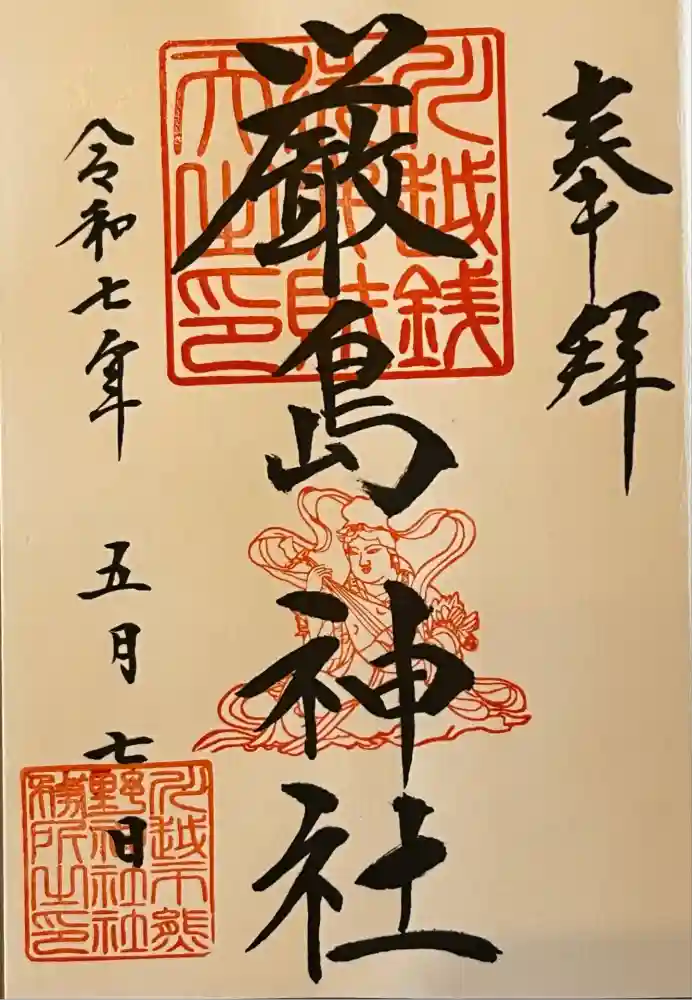 奉拝
川越銭
洗弁財
天之印
厳島神社
令和七年 五月 七日
川越市熊
野神社社
務所之印